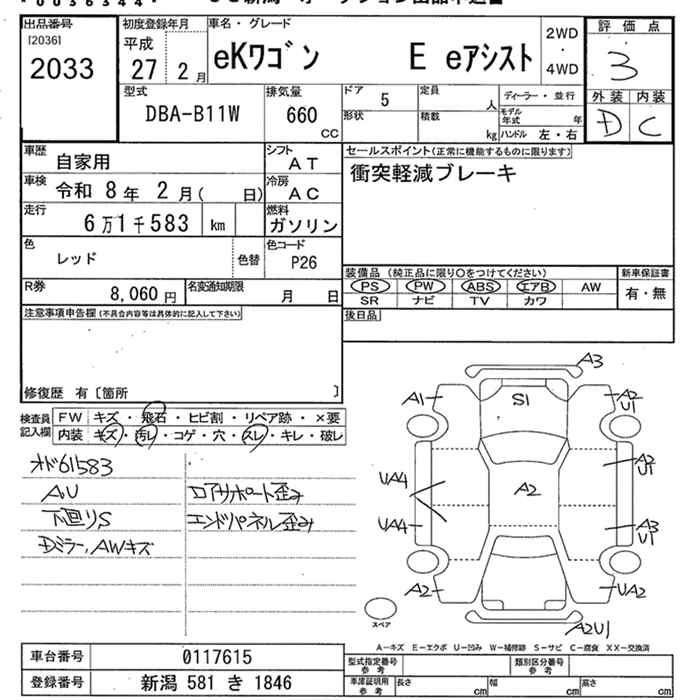 出品番号
[2036]
2033
初度登録年月
平成
27 2月
車名・グレード
eKワゴン E eアシスト
2WD
・
4WD
評価点
3
外装 内装
D C
型式
DBA-B11W
排気量
660
cc
ドア 5
形状
定員 人
積載 kg
ディーラー・並行
モデル年式 年
ハンドル 左・右
車歴
自家用
シフト
AT
車検
令和 8年 2月( 日)
冷房
AC
走行
6万1千583 km
燃料
ガソリン
色
レッド
色替
色コード
P26
R券
8,060円
名変通知期限
月 日
セールスポイント(正常に機能するものに限ります)
衝突軽減ブレーキ
装備品(純正品に限り○をつけてください)
PS PW ABS エアB AW
SR ナビ TV カワ
新車保証書
有・無
後日品
注意事項申告欄(不具合内容等は具体的に記入して下さい)
修復歴 有〔箇所 〕
検査員記入欄
FW キズ・飛石・ヒビ割・リペア跡・×要
内装 キズ・汚レ・コゲ・穴・スレ・キレ・破レ
オド61583
AU
下廻りS
Dミラー,AWキズ
ロアサポート歪み
エンドパネル歪み
A3
A1
S1
A2
U1
UA4
A2
A2
U1
UA4
A3
U1
A2
UA2
A2U1
スペア
A-キズ E-エクボ U-凹み W-補修跡 S-サビ C-腐食 XX-交換済
車台番号
0117615
登録番号
新潟 581 き 1846
型式指定番号
参考
類別区分番号
参考
車庫証明用
参考
長さ cm
幅 cm
高さ cm